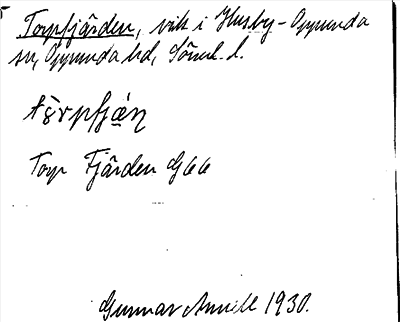 Torpfjärden, vik i Husby-Oppunda
sn, Oppunda hd, Söml. l.
tɷ̀rpfjæ̀ṇ
Torp Fjärden G66
Gunnar Amnell 1930.